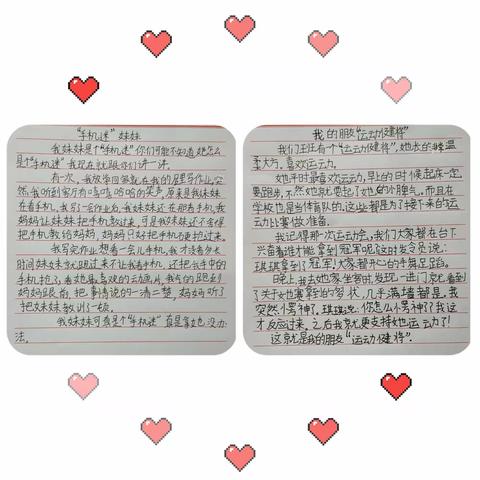 “手机迷”妹妹
我妹妹是个“手机迷”你们可能不知道她怎么
是个“手机迷”我现在就跟你们讲一讲。
有一次，我放学回家就在我的屋里写作业，突
然我听到客厅有嘻嘻哈哈的笑声，原来是我妹妹
在看手机，我写了一会作业，
妈妈让妹妹把手机
把手机教给妈妈，妈妈只好把手机
我写完作业想看一会儿手机，我才没看多长
时间妹妹就跑过来不让我看手机，还把我手中的
手机抢了，看她最喜欢的动画片，我气的跑到
妈妈跟前，把事情说的一清二楚，妈妈听了
把妹妹教训了一顿。
我妹妹可真是个“手机迷”真是拿她没办
法。
我的朋友“运动健将”
我们班上有个“运动健将”，她长的
柔大方，喜欢运动。
她平时最喜欢运动，早上的时候起床一定
要跑步，不然她就要起了她的小脾气，而且在
学校也是当体育队的，这些都是为了接下来的运
动比赛做准备。
我记得那一次运动会，我们大家都在台下
兴奋着谁才能拿到冠军呢这时发令员说：
琪琪拿到了冠军！大家都开心的手舞足蹈。
晚上，我去她家坐客时发现，一进门京尤看到
了关于她赛的奖状，几乎满墙都是，我
突然愣神了，琪琪说：你怎么愣神了我这
才反应过来，之后我就更支持她运动了！
这就是我的朋友“运动健将”。